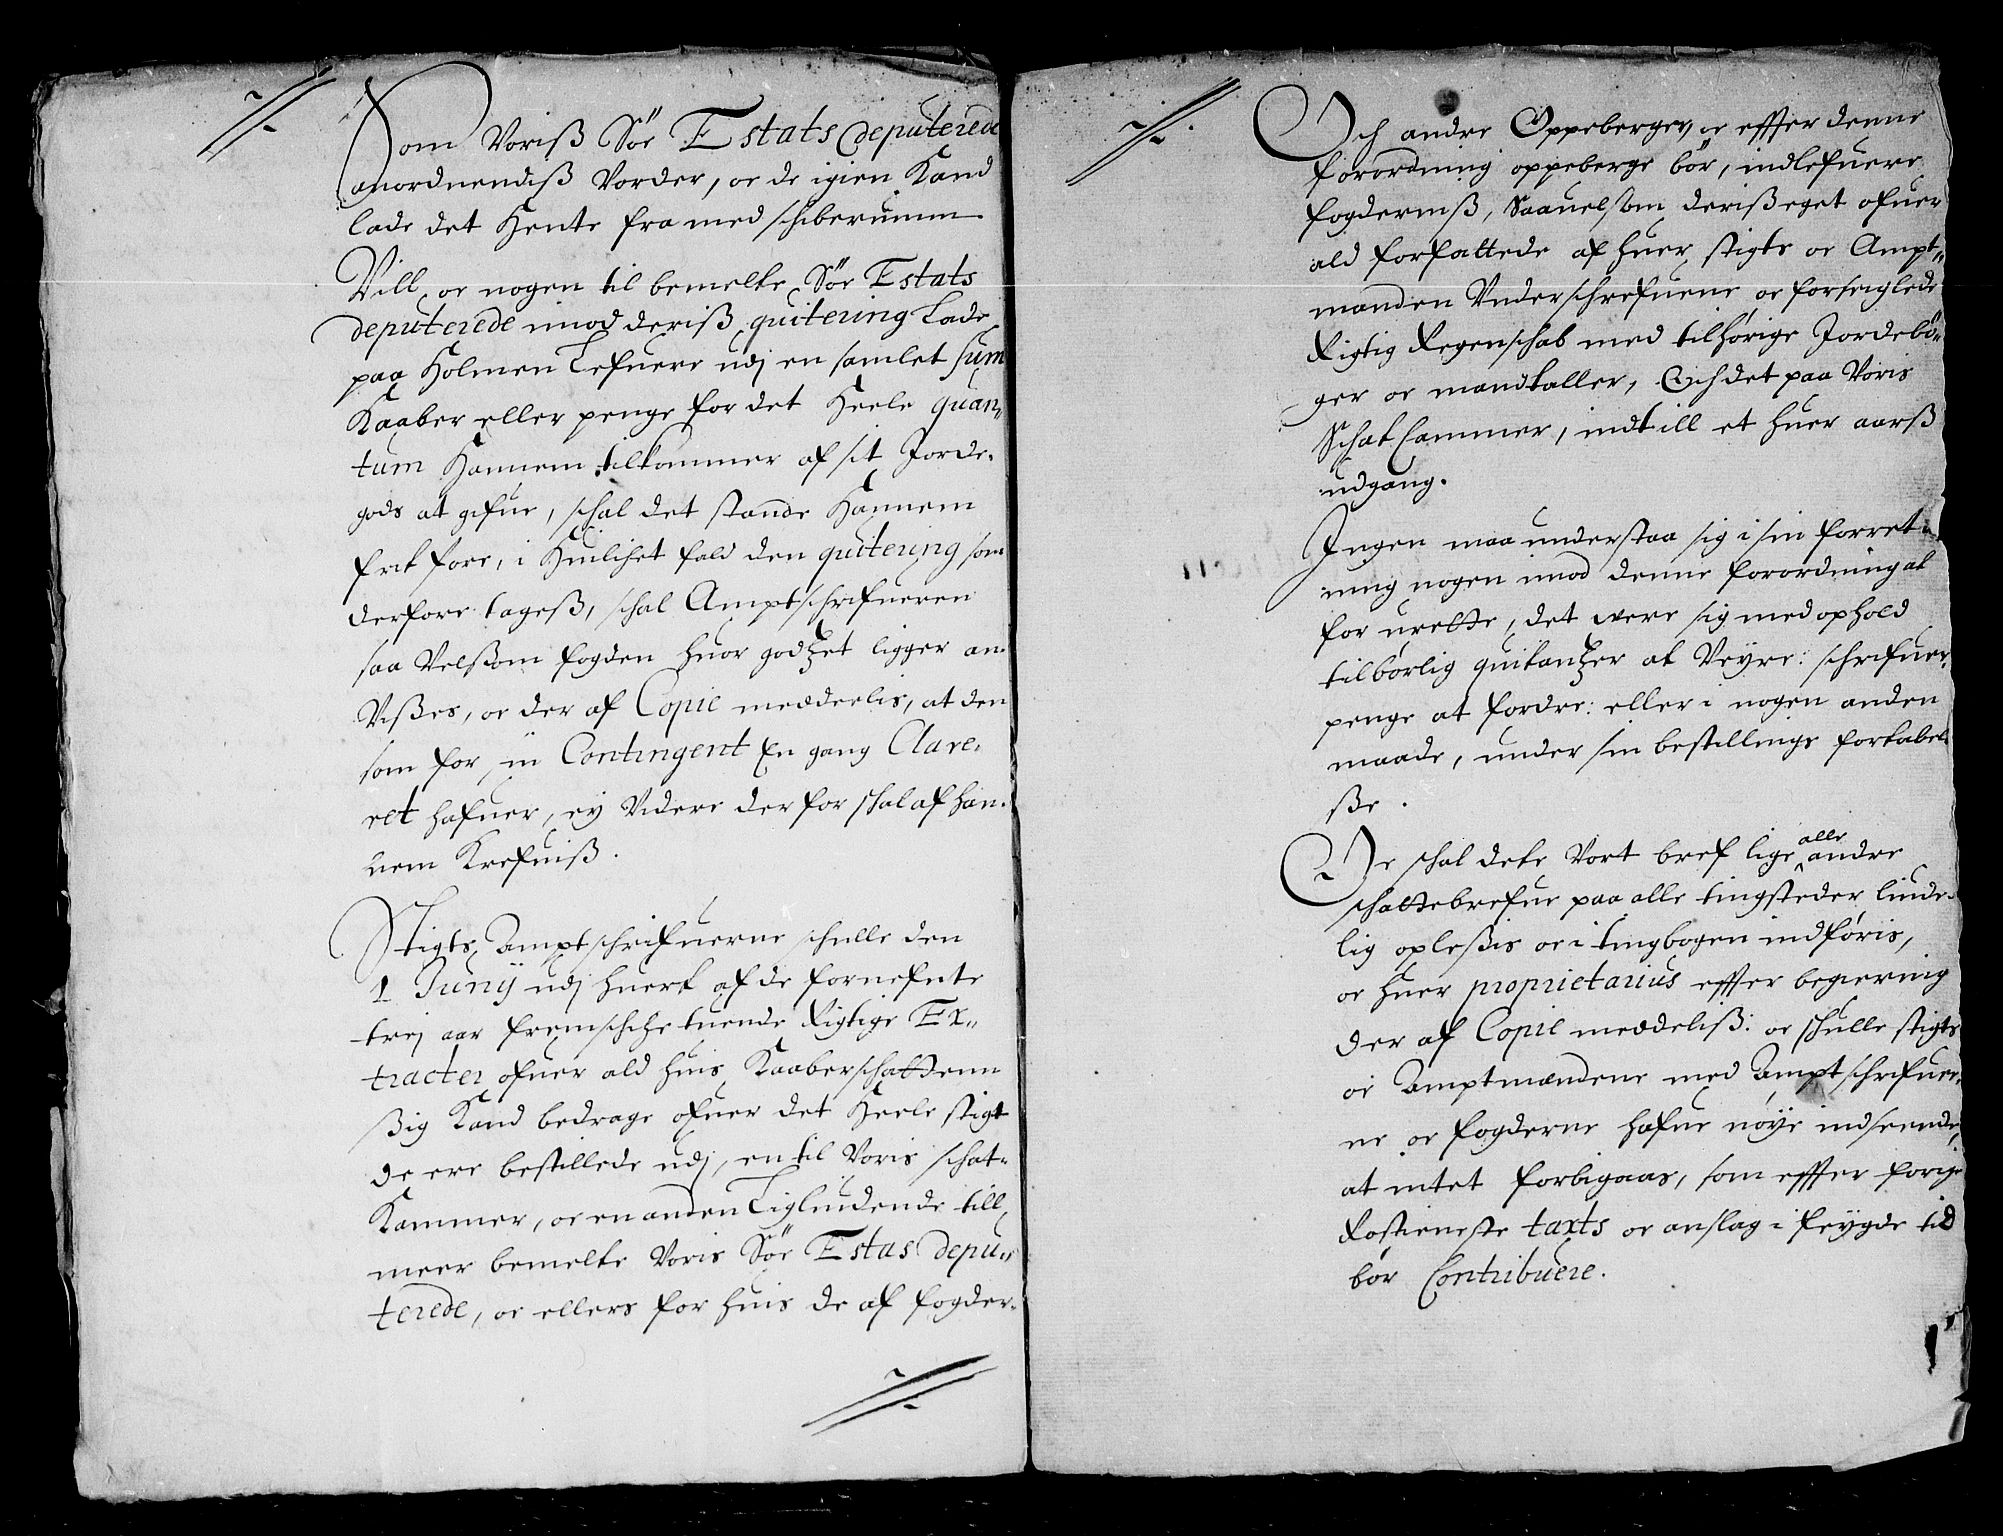 Som Voriß Sör Estats deputerede
anordnendiß Vorder, oc de igien Kand
lade det Hente fra med schiberumm
Vill oc nogen til bemelte Sör Estats
deputerede imod deriß quitering Lade
paa Holmen Lefuere udj en samlet sum
Kaaber eller penge for det Heele quan„
tum Hannem tilkommer af sit Jorde„
gods at gifue, schal det stande Hannem
frit fore, i Huilchet fald den quitering som
derfore tageß, schal Amptschrifueren
saa Velsom fogden huor godtzet ligger an„
Vißes, oc der af Copie meddeelis, at den
som for in Contingent En gang Clare„
ret hafuer, ey Videre derfor schal af han„
nem Krefuiß.
Stigts Amptschrifuerne schulle den
1 Junij udj huert af de fornefnte
trej aar fremschiche tuende Rigtige Ex„
tracter ofuer ald huis Kaaberschattenn
ßig Kand bedrage ofuer det Heele stigt
de ere bestillede udj, en til Voris schat„
Kammer, oc en anden Liglindende till
meer bemelte Voris Sör Estas depu„
terede, oc ellers for huis de af fogder„
Och andre Oppeberger, oc effter denne
forordning oppeberge bör, indlefuere
fogderniß, Saauelsom deriß eget ofuer
ald forfattede af huer stigts oc Ampt„
manden Underschrefuene oc forseiglede
Rigtig Regenschab med tilhörige Jordebö„
ger oc mandtaller, Och det paa Voris
Schat Cammer, indtill et huer aarß
udgang.
Ingen maa understaa sig i sin forret„
ning nogen imod denne forordning at
for urette, det were sig med ophold
tilbörlig quitantzer at Veyre: schrifuer
penge at fordre: eller i nogen anden
maade, under sin bestillings fortabel
ße.
Oc schal dete Vort bref lige alle andre
schattebrefue paa alle tingsteder liude„
lig opleßis oc i tingbogen indföris,
oc huer proprietarius effter begiering
der af Copie meddeliß: oc schulle stigts
oc Amptmændene med Amptschrifuer„
ne oc fogderne hafue nöye indseende,
at intet forbigaas, som effter forige
Rostieneste taxts oc anslag i feygde tid
bör Contribuere.